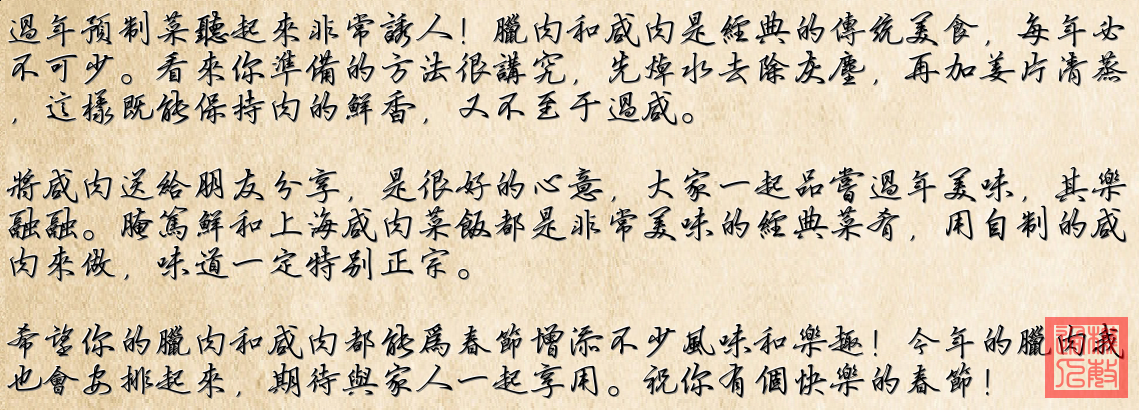 過年預制菜聽起來非常誘人！臘肉和咸肉是經典的傳統美食，每年必
不可少。看來你準備的方法很講究，先焯水去除灰塵，再加姜片清蒸
，這樣既能保持肉的鮮香，又不至于過咸。
將咸肉送給朋友分享，是很好的心意，大家一起品嘗過年美味，其樂
融融。腌篤鮮和上海咸肉菜飯都是非常美味的經典菜肴，用自制的咸
肉來做，味道一定特別正宗。
希望你的臘肉和咸肉都能爲春節增添不少風味和樂趣！今年的臘肉我
也會安排起來，期待與家人一起享用。祝你有個快樂的春節！